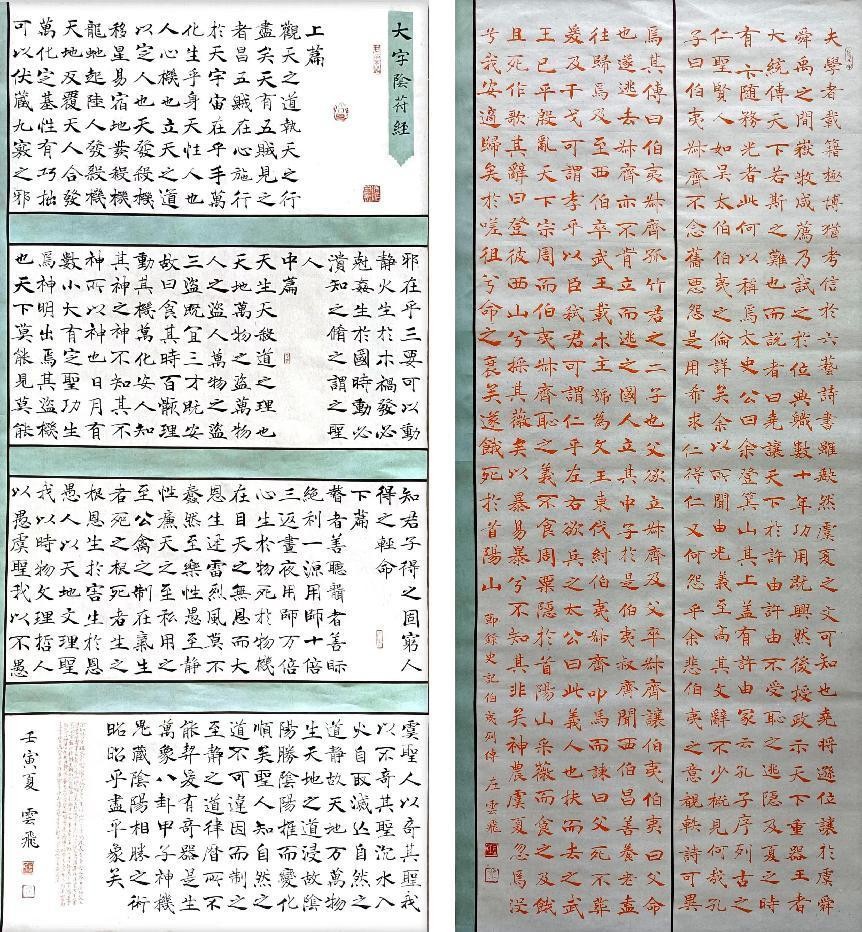 大字陰符經
上篇
觀天之道執天之行
盡矣天有五賊見之
者昌五賊在心施行
於天宇宙在乎手萬
化生乎身天性人也
人心機也立天之道
以定人也天發殺機
移星易宿地發殺機
龍虵起陸人發殺機
天地反覆天人合發
萬化定基性有巧拙
可以伏藏九竅之邪
邪在乎三要可以動
靜火生於木禍發必
剋姦生於國時動必
潰知之脩之謂之聖
人
中篇
天生天殺道之理也
天地萬物之盜萬物
人之盜人萬物之盜
三盜既宜三才既安
故曰食其時百骸理
動其機萬化安人知
其神之神不知其不
神所以神也日月有
數小大有定聖功生
焉神明出焉其盜機
也天下莫能見莫能
知君子得之固窮人
得之輕命
下篇
瞽者善聽聾者善眎
絕利一源用師十倍
三返晝夜用師万倍
心生於物死於物機
在目天之無恩而大
恩生迅雷烈風莫不
蠢然至樂性愚至靜
性廉天之至私用之
至公禽之制在氣生
者死之根死者生之
根恩生於害生於恩
愚人以天地文理聖
我以時物文理哲人
以愚虞聖我以不愚
虞聖人以奇其聖我
以不奇其聖沉水入
火自取滅亡自然之
道靜故天地万萬物
生天地之道浸故陰
陽勝陰陽推而變化
順矣聖人知自然之
道不可違因而制之
至靜之道律曆所不
能契爰有奇器是生
萬象八卦甲子神機
鬼藏陰陽相勝之術
昭昭乎盡乎象矣
壬寅夏 雲飛
夫學者載籍極博猶考信於六藝詩書雖缺然虞夏之文可知也堯將遜位讓於虞舜
舜禹之間嶽牧咸薦乃試之於位典職數十年功用既興然後授政示天下重器王者
大統傳天下若斯之難也而說者曰堯讓天下於許由許由不受恥之逃隱及夏之時
有卞随務光者此何以稱焉太史公曰余登箕山其上蓋有許由冢云孔子序列古之
仁聖賢人如吴太伯伯夷之倫詳矣余以所聞由光義至高其文辭不少概見何哉孔
子曰伯夷叔齊不念舊惡怨是用希求仁得仁又何怨乎余悲伯夷之意覩軼詩可異
焉其傳曰伯夷叔齊孤竹君之二子也父欲立叔齊及父卒叔齊讓伯夷伯夷曰父命
也遂逃去叔齊亦不肯立而逃之國人立其中子於是伯夷叔齊聞西伯昌善養老盍
往歸焉及至西伯卒武王載木主歸為文王東伐紂伯夷叔齊叩馬而諫曰父死不葬
爰及干戈可謂孝乎以臣弒君可謂仁乎左右欲兵之太公曰此義人也扶而去之武
王已平殷亂天下宗周而伯夷叔齊恥之義不食周粟隱於首陽山采薇而食之及餓
且死作歌其辭曰登彼西山兮採其薇矣以暴易暴兮不知其非矣神農虞夏忽焉沒
兮我安適歸矣於嗟徂兮命之衰矣遂餓死於首陽山 節錄史記伯夷列傳 左雲飛